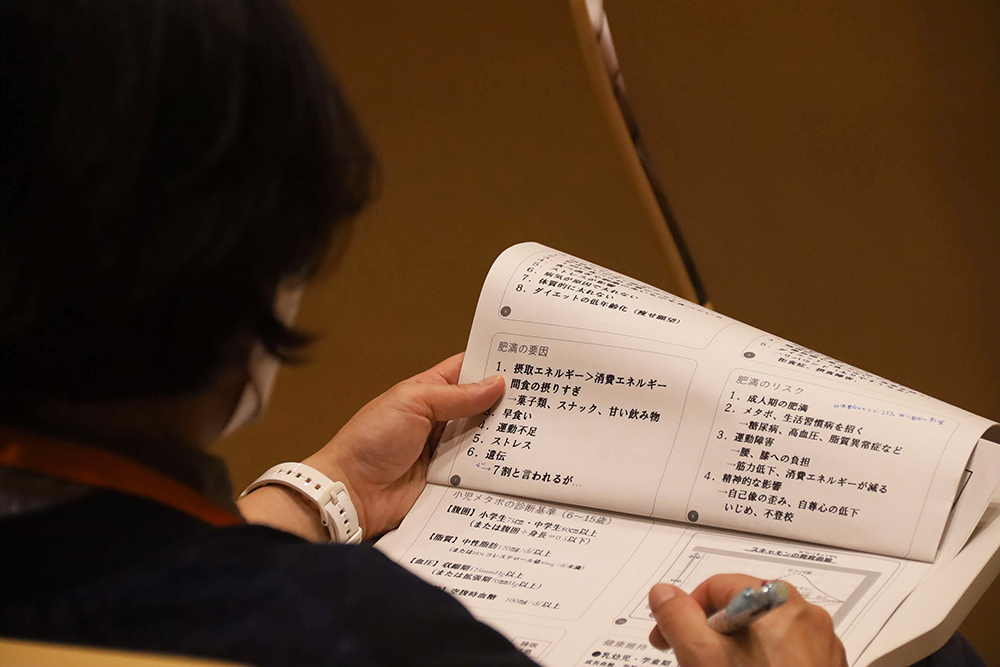 6. ストレスが影響
7. 病気が原因で太れない
体質的に太れない
8. ダイエットの低年齢化（痩せ願望）
肥満の要因
1. 摂取エネルギー＞消費エネルギー
間食の摂りすぎ
→菓子類、スナック、甘い飲み物
3. 早食い
4. 運動不足
5. ストレス
6. 遺伝
→7割と言われるが…
拒食症、摂食障害
肥満のリスク
1. 成人期の肥満
2. メタボ、生活習慣病を招く
→糖尿病、高血圧、脂質異常症など
3. 運動障害
→腰、膝への負担
→筋力低下、消費エネルギーが減る
4. 精神的な影響
→自己像の歪み、自尊心の低下
いじめ、不登校
小児メタボの診断基準（6～15歳）
【腹囲】小学生75㎝・中学生80㎝以上
（または腹囲÷身長＝0.5以下）
【脂質】中性脂肪120㎎/dl以上
（またはHDLコレステロール値40㎎/dl未満）
【血圧】収縮期125mmHg以上
（または拡張期70mmHg以上）
空腹時血糖 100㎎/dl以上
スキャモンの発育曲線
健康維持
●乳幼児・学童期